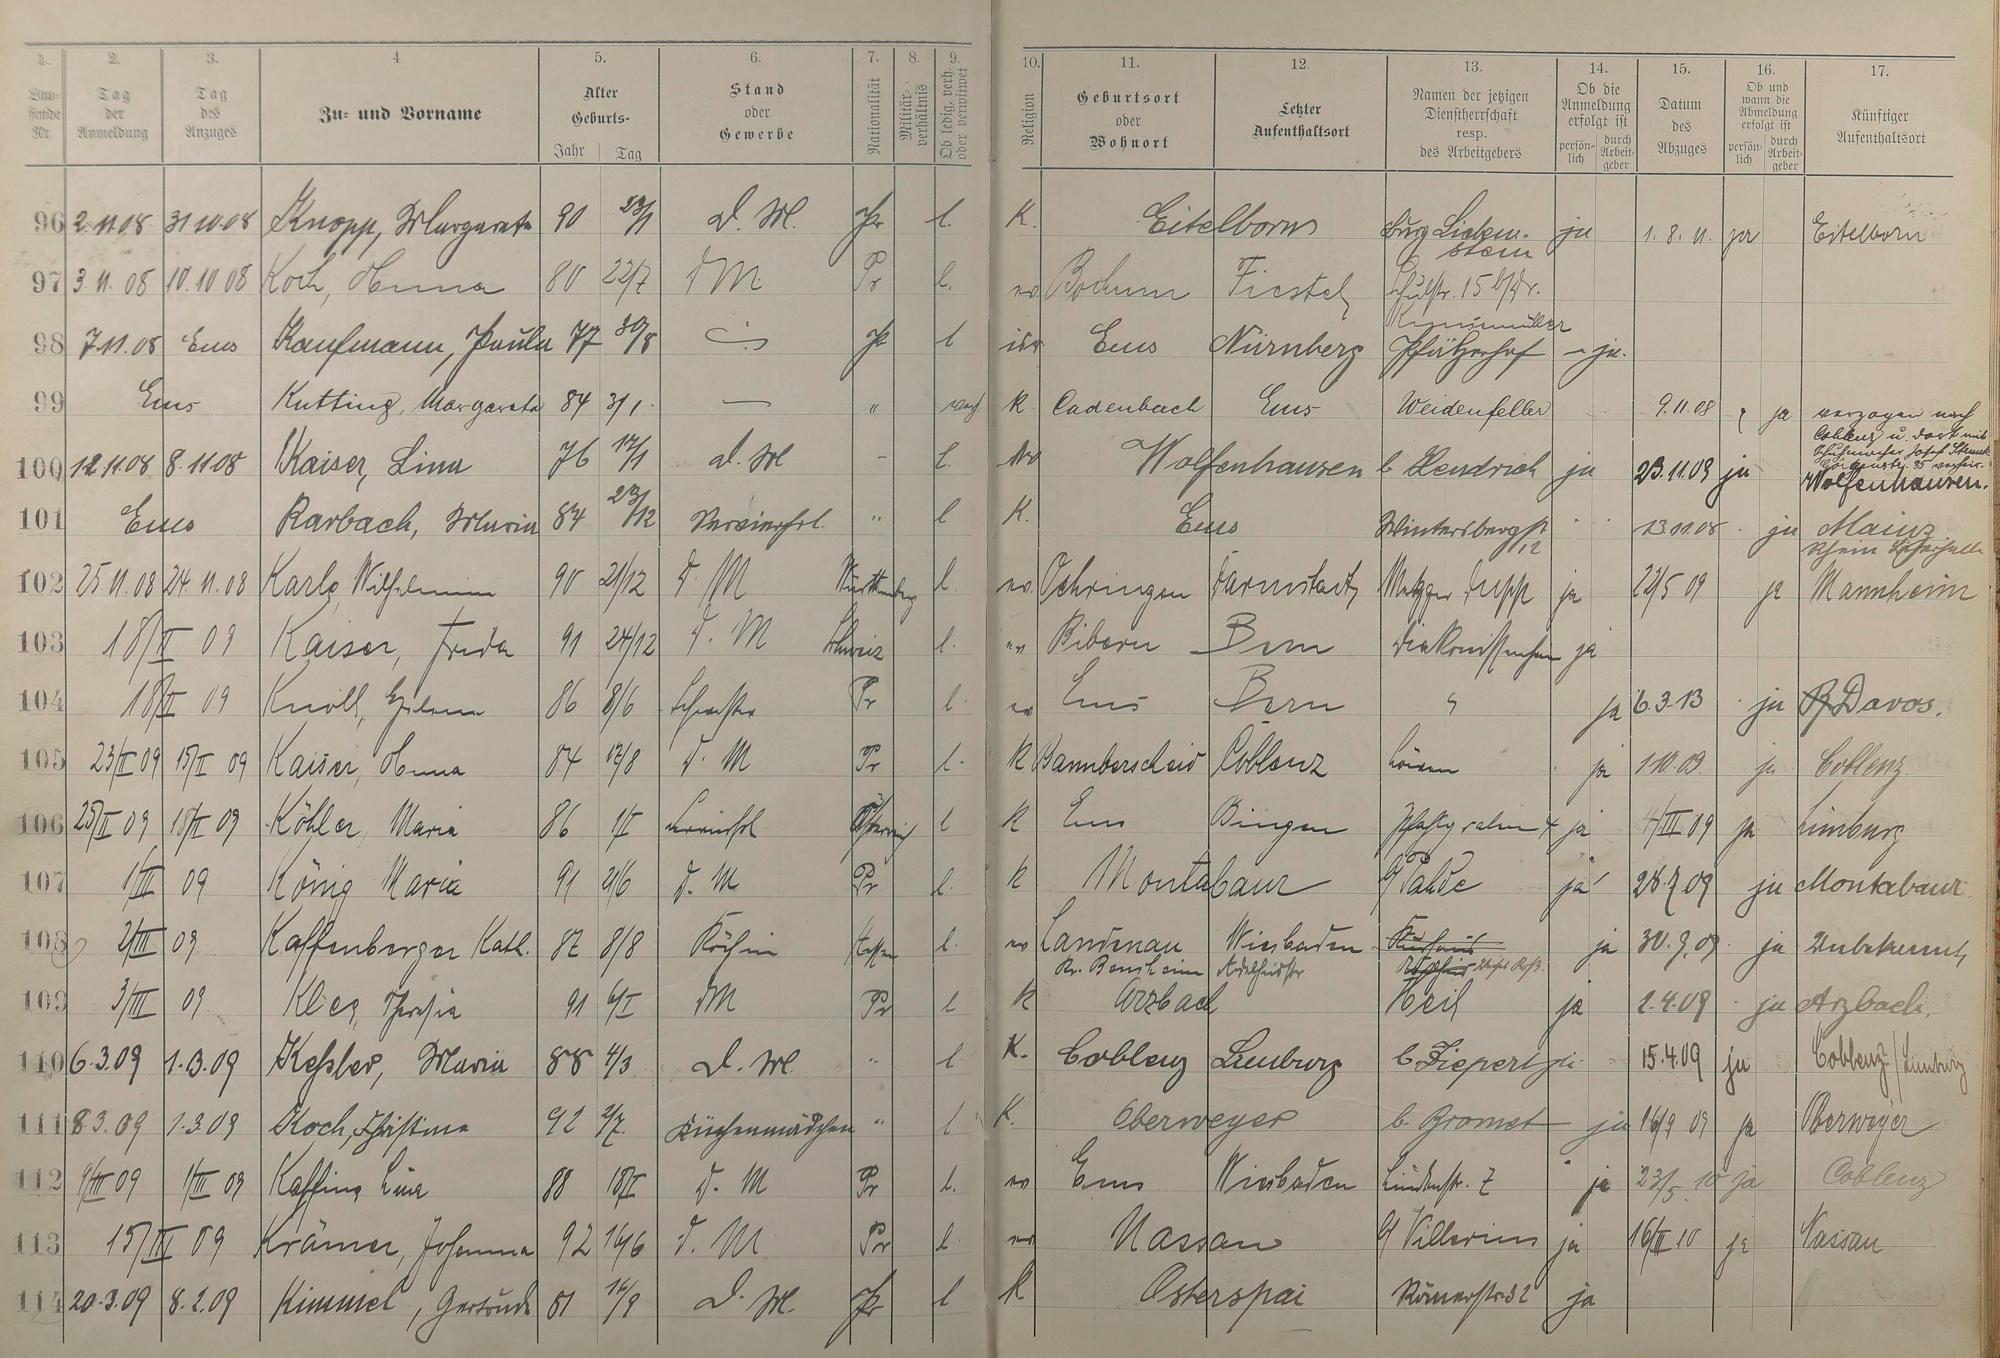 1. 2. 3. 4. 5. 6. 7. 8. 9. 10. 11. 12. 13. 14. 15. 16. 17.
Laufende Nr. Tag der Anmeldung Tag des Anzuges Zu- und Vorname Alter Geburts- Jahr Tag Stand oder Gewerbe Nationalität Militärverhältnis Ob ledig, verh. oder verwitwet Religion Geburtsort oder Wohnort Letzter Aufenthaltsort Namen der jetzigen Dienstherrschaft resp. des Arbeitgebers Ob die Anmeldung erfolgt ist persönlich durch Arbeitgeber Datum des Abzuges Ob und wann die Abmeldung erfolgt ist persönlich durch Arbeitgeber Künftiger Aufenthaltsort
96 2.11.08 31.10.08 Knopp, Margareta 90 23/1 D. M. Pr l. K. Eitelborn Burg Lieben- ja 1.8.11. ja Eitelborn
stein
97 3.11.08 10.10.08 Koch, Anna 80 22/7 D M Pr l. ev. Bochum Fiestel Schulstr. 15
98 7.11.08 Ems Kaufmann, Paula 77 30/8 Pr l isr Ems Nürnberg Pfälzerhof - ja.
99 Ems Kutting, Margareta 84 3/1. — " verh. K. Cadenbach Ems Weidenfeller 9.11.08 ja verzogen nach
Coblenz u. dort mit
Schuhmacher Josef
35 verheir.
100 12.11.08 8.11.08 Kaiser, Lina 76 17/1 D. M - l. ev Wolfenhausen b. Hendrich ja 23.11.09 ja Wolfenhausen.
101 Ems Karbach, Maria 84 23/12 " l K. Ems Wintersbergstr 13.11.08 ja Mainz
12
102 25.11.08 24.11.08 Karle, Wilhelmine 90 21/12 D. M Württemberg l. ev. Oehringen Darmstadt Metzger Dupp ja 22/5 09 ja Mannheim
103 18/II 09 Kaiser, Frida 91 24/12 D. M Schweiz l. ev Bibern Bern Diakonissenheim ja
104 18/II 09 Knoll, 86 8/6 Schwester Pr l. ev Ems Bern " ja 6.3.13 ja Davos.
105 23/II 09 15/II 09 Kaiser, Anna 84 12/8 D. M Pr l. K Bannberscheid Coblenz Löwen ja 1.10.09. ja Coblenz.
106 25/II 09 18/II 09 Köhler, Maria 86 1/I Österreich l K Ems Bingen ja 4/III 09 ja Limburg
107 1/III 09 König Maria 91 2/6 D. M Pr l. K Montabaur ja 28.7.09 ja Montabaur
108 2/III 09 Kaffenberger Kath. 82 8/8 Köchin Hessen l. ev Landenau Wiesbaden Kurhaus ja 30.9.09. ja Unbekannt
Kr. Bensheim Adelheidstr
109 3/III 09 Klee, Theresia 91 6/I D M Pr l K Arzbach Heil ja 2.4.09 ja Arzbach.
110 6.3.09 1.3.09 Keßler, Maria 88 4/3 D. M. " l K. Coblenz Limburg b. Fiepert ja 15.4.09 ja Coblenz/Limburg
111 8.3.09 1.3.09 Koch, Christine 92 2/7. Küchenmädchen " l. K. Oberweyer b. Bromet ja 16/9 09 ja Oberweyer
112 9/III 09 1/III 09 Kaffine Lina 88 18/I D. M Pr l. ev Ems Wiesbaden Lindenstr. 7 " ja 23/5. 10 ja Coblenz
113 15/III 09 Krämer, Johanna 92 14/6 D. M Pr l. ev Nassau ja 16/II 10 ja Nassau
114 20.3.09 8.2.09 Kimmel, Gertrude 81 16/9 D. M. Pr l K. Osterspai Römerstr. 32 ja